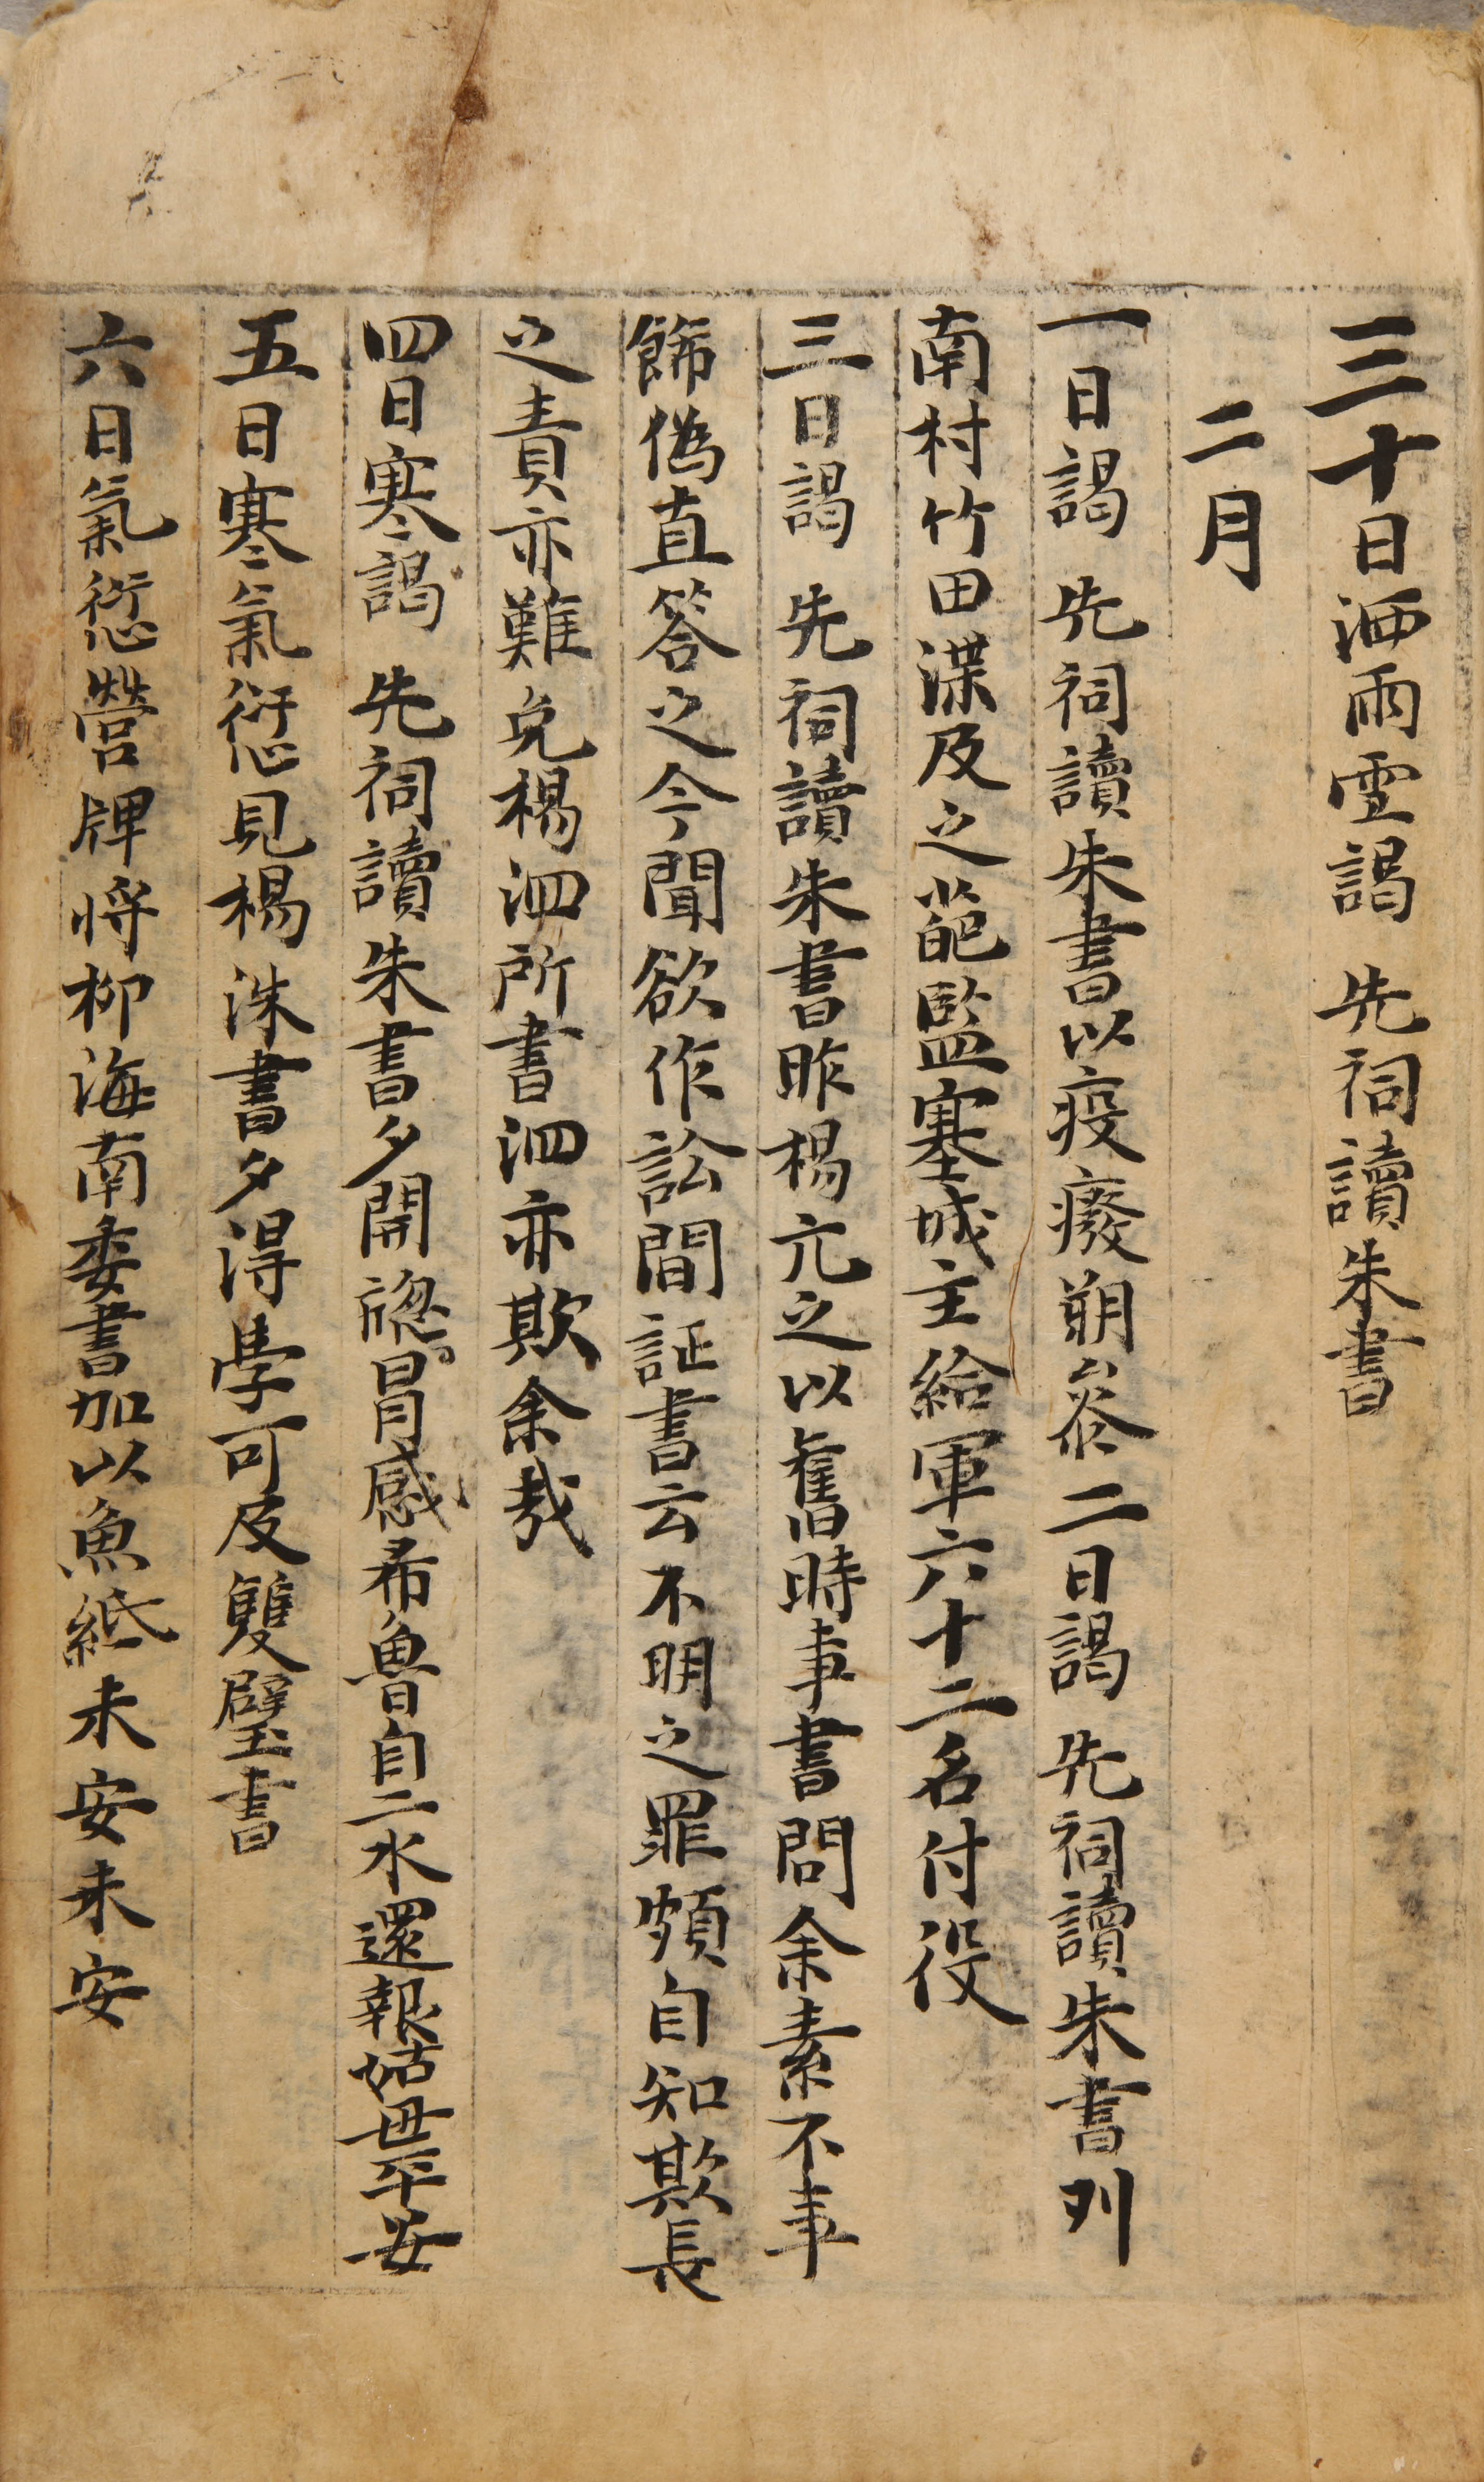 三十日洒雨雪謁 先祠讀朱書
二月
一日謁 先祠讀朱書以疫癈朔叅二日謁 先祠讀朱書刈
南村竹田渫及之葩監塞城主給軍六十二名付役
三日謁 先祠讀朱書昨楊亢之以舊時事書問余素不事
餙偽直答之今聞欲作訟間証書云不明之罪頗自知欺長
之責亦難免楊泗所書泗亦欺余哉
四日寒謁 先祠讀朱書夕開牕冒感希魯自二水還報姑母平安
五日寒氣愆見楊洙書夕得學可及雙璧書
六日氣愆營牌将柳海南委書加以魚紙未安未安